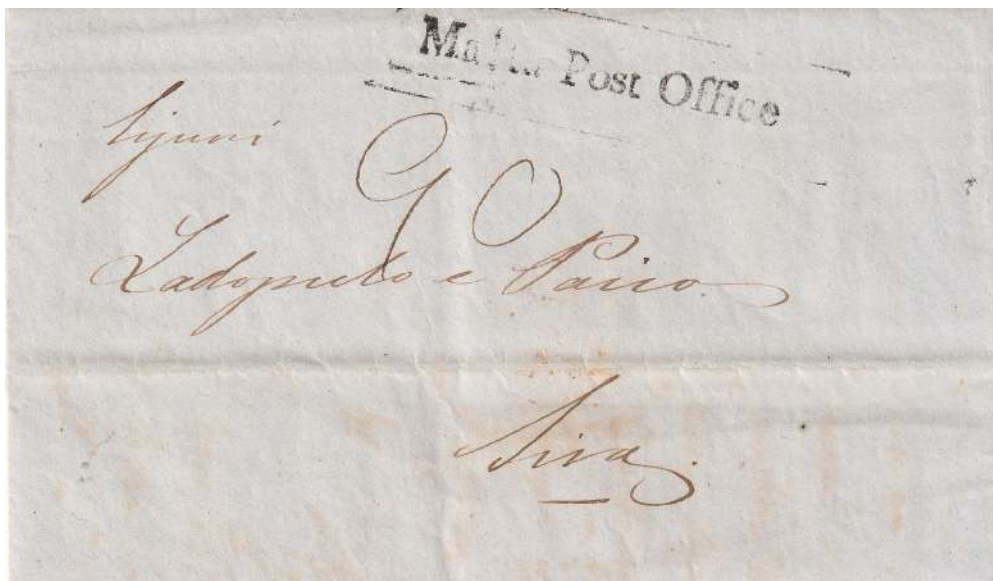 Malta Post Office
Signori
90
Ladopulo e
Sira